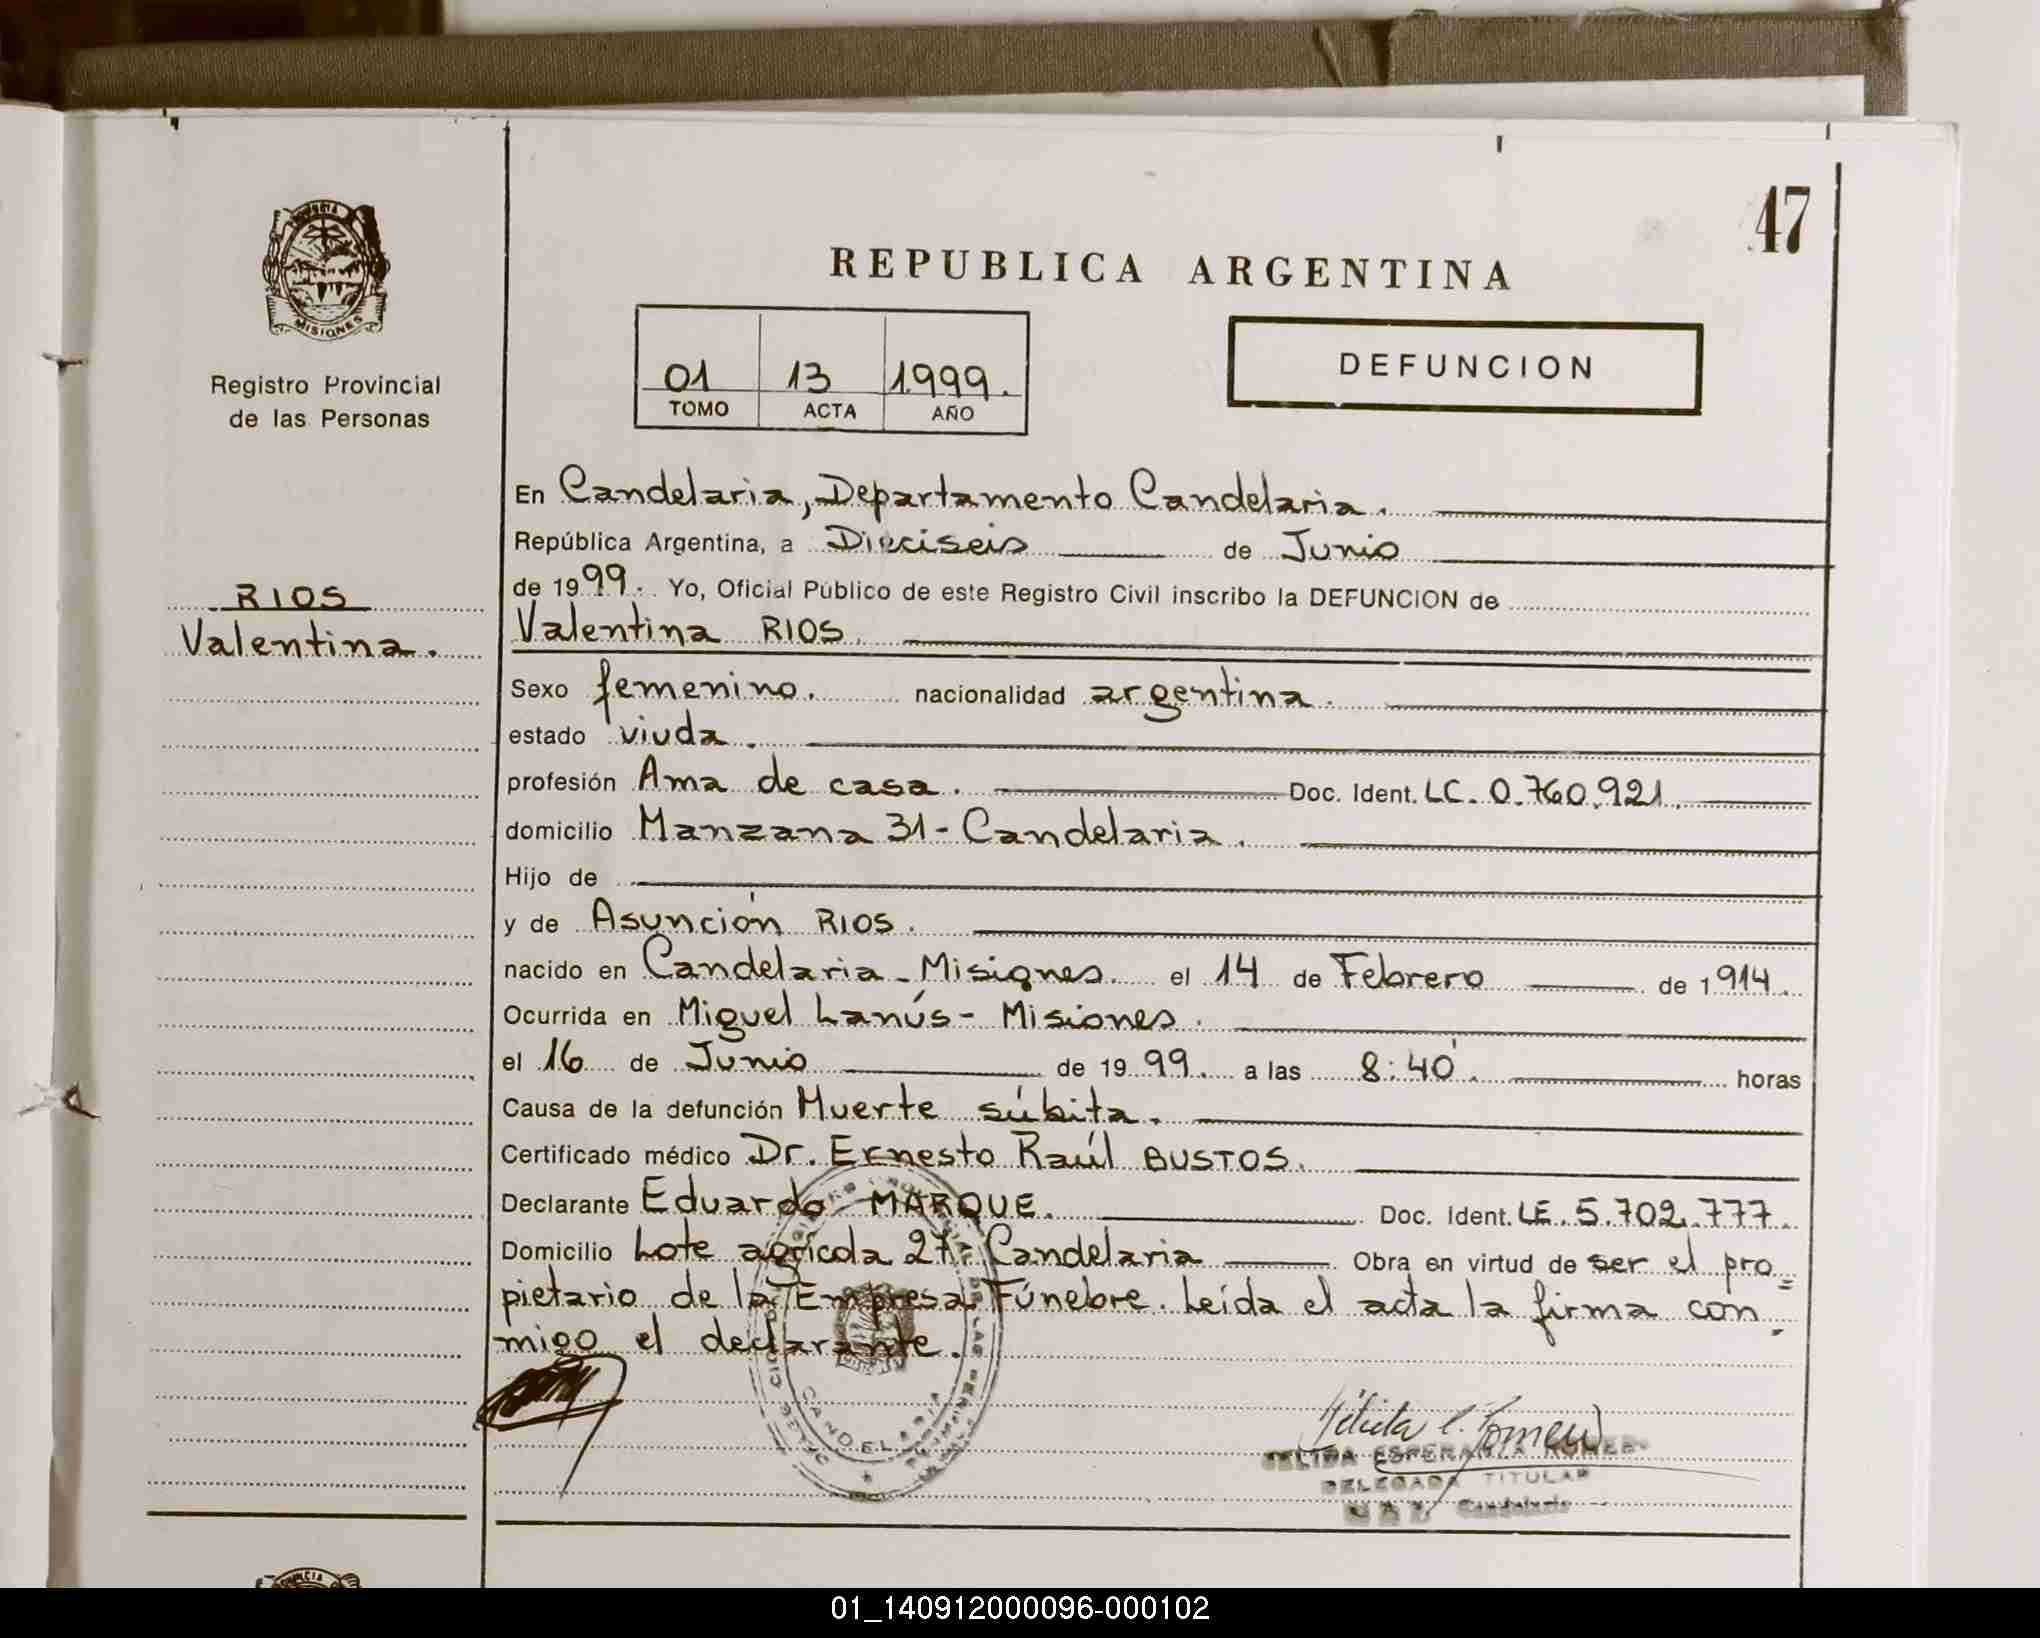 47
REPUBLICA ARGENTINA
MISIONES
Registro Provincial
de las Personas
01 13 1999.
TOMO ACTA AÑO
DEFUNCION
RIOS
Valentina.
En Candelaria, Departamento Candelaria.
República Argentina, a Dieciseis de Junio
de 1999. Yo, Oficial Público de este Registro Civil inscribo la DEFUNCION de
Valentina RIOS.
Sexo femenino. nacionalidad argentina.
estado viuda.
profesión Ama de casa. Doc. Ident. LC. 0.760.921.
domicilio Manzana 31- Candelaria.
Hijo de
y de Asunción RIOS.
nacido en Candelaria - Misiones. el 14 de Febrero de 1914.
Ocurrida en Miguel Lanús - Misiones.
el 16 de Junio de 1999. a las 8:40. horas
Causa de la defunción Muerte súbita.
Certificado médico Dr. Ernesto Raúl BUSTOS.
Declarante Eduardo MARQUE. Doc. Ident. LE. 5.702.777.
Domicilio Lote agrícola 27. Candelaria Obra en virtud de ser el pro=
pietario de la Empresa Fúnebre. Leída el acta la firma con-
migo el declarante.
CANDELARIA
DELEGADA TITULAR
Candelaria
01_140912000096-000102